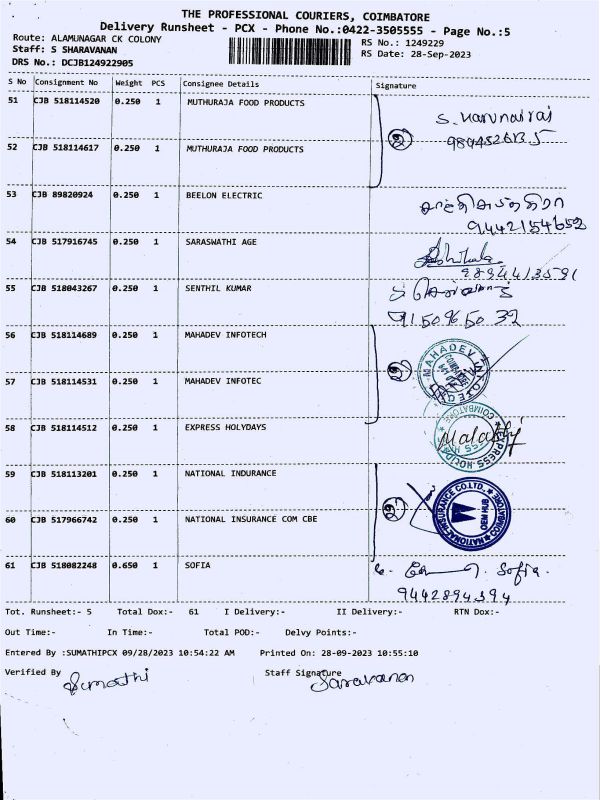 THE PROFESSIONAL COURIERS, COIMBATORE
Delivery Runsheet - PCX - Phone No.:0422-3505555 - Page No.:5
Route: ALAMUNAGAR CK COLONY RS No.: 1249229
Staff: S SHARAVANAN RS Date: 28-Sep-2023
DRS No.: DCJB124922905
S No Consignment No Weight PCS Consignee Details Signature
51 CJB 518114520 0.250 1 MUTHURAJA FOOD PRODUCTS
52 CJB 518114617 0.250 1 MUTHURAJA FOOD PRODUCTS
53 CJB 89820924 0.250 1 BEELON ELECTRIC
9442154652
54 CJB 517916745 0.250 1 SARASWATHI AGE
9894413591
55 CJB 518043267 0.250 1 SENTHIL KUMAR
9150965032
56 CJB 518114689 0.250 1 MAHADEV INFOTECH
MAHADEV INFOTECH
57 CJB 518114531 0.250 1 MAHADEV INFOTEC
58 CJB 518114512 0.250 1 EXPRESS HOLYDAYS
COIMBATORE
59 CJB 518113201 0.250 1 NATIONAL INDURANCE
NATIONAL INSURANCE CO.LTD. COIMBATORE
OEM HUB
60 CJB 517966742 0.250 1 NATIONAL INSURANCE COM CBE
61 CJB 518082248 0.650 1 SOFIA Sofia.
9442894394
Tot. Runsheet:- 5 Total Dox:- 61 I Delivery:- II Delivery:- RTN Dox:-
Out Time:- In Time:- Total POD:- Delvy Points:-
Entered By :SUMATHIPCX 09/28/2023 10:54:22 AM Printed On: 28-09-2023 10:55:10
Verified By Sumathi Staff Signature Saravanan